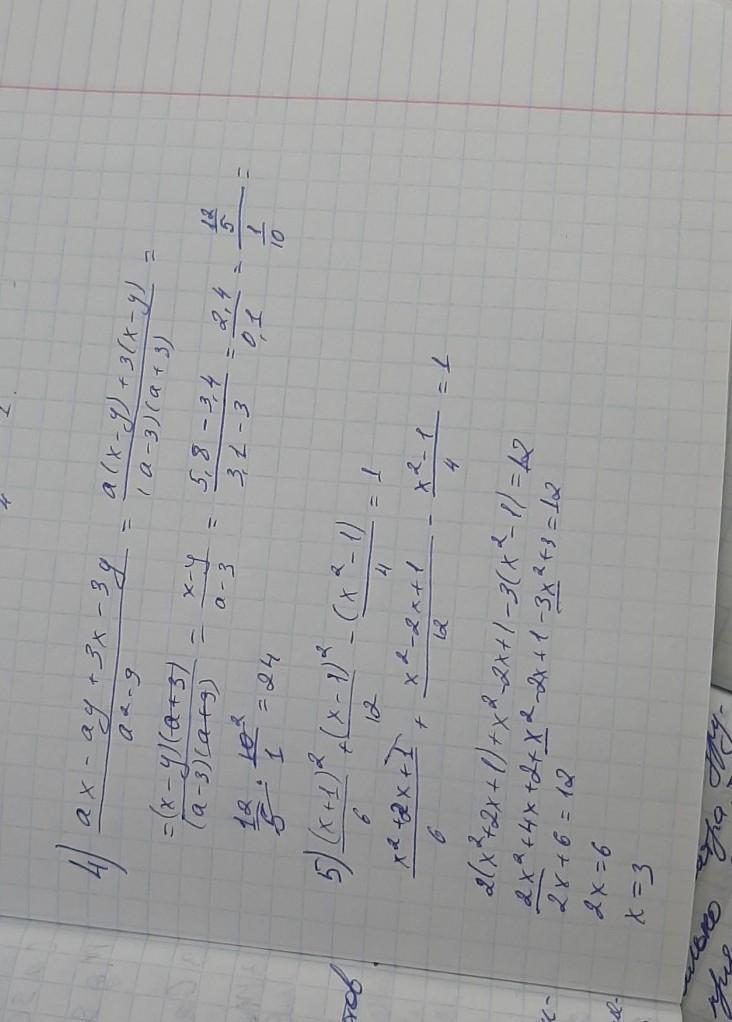 4) (ax - ay + 3x - 3y)/(a² - 9) = (a(x-y) + 3(x-y))/((a-3)(a+3)) =
= ((x-y)(a+3))/((a-3)(a+3)) = (x-y)/(a-3) = (5,8 - 3,4)/(3,1 - 3) = 2,4/0,1 = (12/5)/(1/10) =
12/5 · 10²/1 = 24
5) (x+1)²/6 + (x-1)²/12 - (x²-1)/4 = 1
(x²+2x+1)/6 + (x²-2x+1)/12 - (x²-1)/4 = 1
2(x²+2x+1) + x²-2x+1 - 3(x²-1) = 12
2x²+4x+2+x²-2x+1-3x²+3=12
2x+6=12
2x=6
x=3